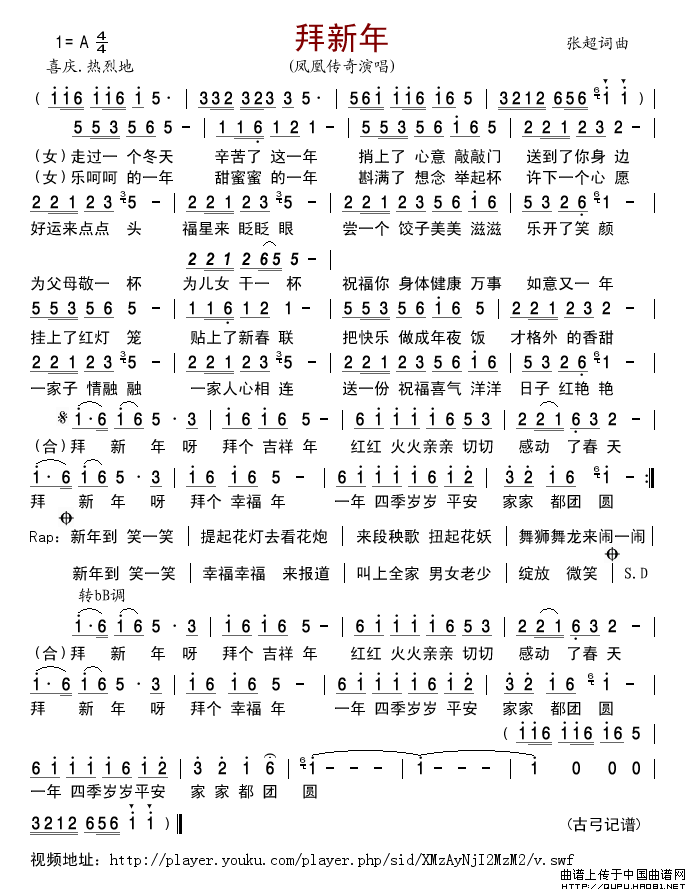 拜新年
1= A 4/4
张超词曲
喜庆.热烈地
(凤凰传奇演唱)
( i i i 6 i 5 · | 3 3 2 3 2 3 5 · | 5 6 i i 6 i 6 5 | 3 2 1 2 6 5 6 i i | )
5 5 3 5 6 5 - | 1 1 6 1 2 1 - | 5 5 3 5 6 5 i 6 5 | 2 2 1 2 3 2 - |
(女)走过一 个冬天 辛苦了 这一年 捎上了 心意 敲敲门 送到了你身 边
(女)乐呵呵 的一年 甜蜜蜜 的一年 斟满了 想念 举起杯 许下一个心 愿
2 2 1 2 3 5 - | 2 2 1 2 3 2 - | 2 2 1 2 3 5 6 i 6 | 5 5 3 2 6 1 - |
好运来点点 头 福星来 眨眨 眼 尝一个 饺子美美 滋滋 乐开了笑 颜
2 2 1 2 6 5 5 - |
为父母敬一 杯 为儿女 干一 杯 祝福你 身体健康 万事 如意又一 年
5 5 3 5 6 5 - | 1 1 6 1 2 1 - | 5 5 3 5 6 1 6 5 | 2 2 1 2 3 2 - |
挂上了红灯 笼 贴上了新春 联 把快乐 做成年夜 饭 才格外 的香甜
2 2 1 2 3 5 - | 2 2 1 2 3 5 - | 2 2 1 2 3 5 6 i 6 | 5 5 3 2 6 1 - |
一家子 情融 融 一家人心相 连 送一份 祝福喜气 洋洋 日子 红艳 艳
i · 6 i 6 5 · 3 | i 6 i 6 5 - | 6 i i i i 6 5 3 | 2 2 1 6 3 2 - |
(合)拜 新 年 呀 拜个 吉祥 年 红红 火火亲亲 切切 感动 了春 天
i · 6 i 6 5 · 3 | i 6 i 6 5 - | 6 i i i i 6 i 2 | 3 2 i 6 i - :‖
拜 新 年 呀 拜个 幸福 年 一年 四季岁岁 平安 家家 都团 圆
Rap: 新年到 笑一笑 | 提起花灯去看花炮 | 来段秧歌 扭起花妖 | 舞狮舞龙来闹一闹 |
新年到 笑一笑 | 幸福幸福 来报道 | 叫上全家 男女老少 | 绽放 微笑 | S.D
转bB调
i · 6 i 6 5 · 3 | i 6 i 6 5 - | 6 i i i i 6 5 3 | 2 2 1 6 3 2 - |
(合)拜 新 年 呀 拜个 吉祥 年 红红 火火亲亲 切切 感动 了春 天
i · 6 i 6 5 · 3 | i 6 i 6 5 - | 6 i i i i 6 i 2 | 3 2 i 6 i - |
拜 新 年 呀 拜个 幸福 年 一年 四季岁岁 平安 家家 都团 圆
( i i 6 i i 6 i 6 5 |
6 i i i i 6 i 2 | 3 2 i 6 | i - - - | i - - - | 1 0 0 0 |
一年 四季岁岁平安 家 家 都 团 圆
3 2 1 2 6 5 6 i i ) ‖
(古弓记谱)
视频地址: http://player.youku.com/player.php/sid/XMzAyNjI2MzM2/v.swf
曲谱上传于中国曲谱网
HTTP://QUPU.HAO81.NET